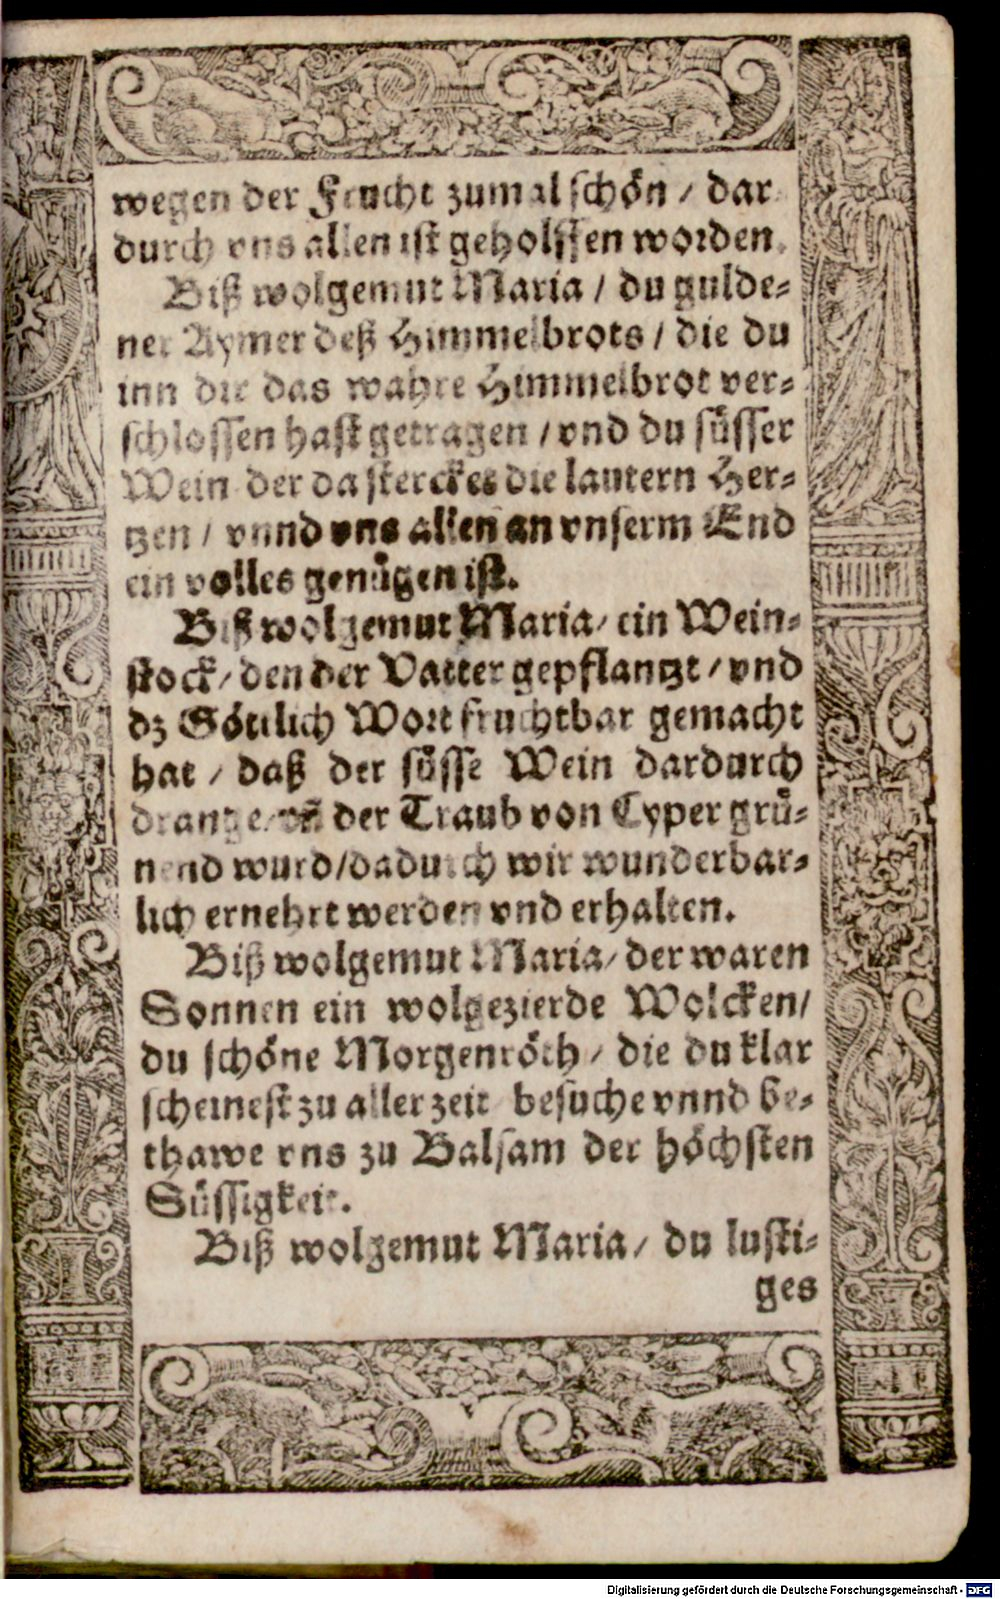 wegen der Frucht zumal schön / dar
durch vns allen ist geholffen worden.
Biß wolgemut Maria / du gulde-
ner Aymer deß Himmelbrots / die du
inn dir das wahre Himmelbrot ver-
schlossen hast getragen / vnd du süsser
Wein der da stercket die lautern Her-
tzen / vnnd vns allen an vnserm End
ein volles genügen ist.
Biß wolgemut Maria / ein Wein-
stock / den der Vatter gepflantzt / vnd
dz Göttlich Wort fruchtbar gemacht
hat / daß der süsse Wein dardurch
drange / vñ der Traub von Cyper grü-
nend wurd / dadurch wir wunderbar-
lich ernehrt werden vnd erhalten.
Biß wolgemut Maria / der waren
Sonnen ein wolgezierde Wolcken /
du schöne Morgenröth / die du klar
scheinest zu aller zeit besuche vnnd be-
thawe vns zu Balsam der höchsten
Süssigkeit.
Biß wolgemut Maria / du lusti-
ges
Digitalisierung gefördert durch die Deutsche Forschungsgemeinschaft - DFG